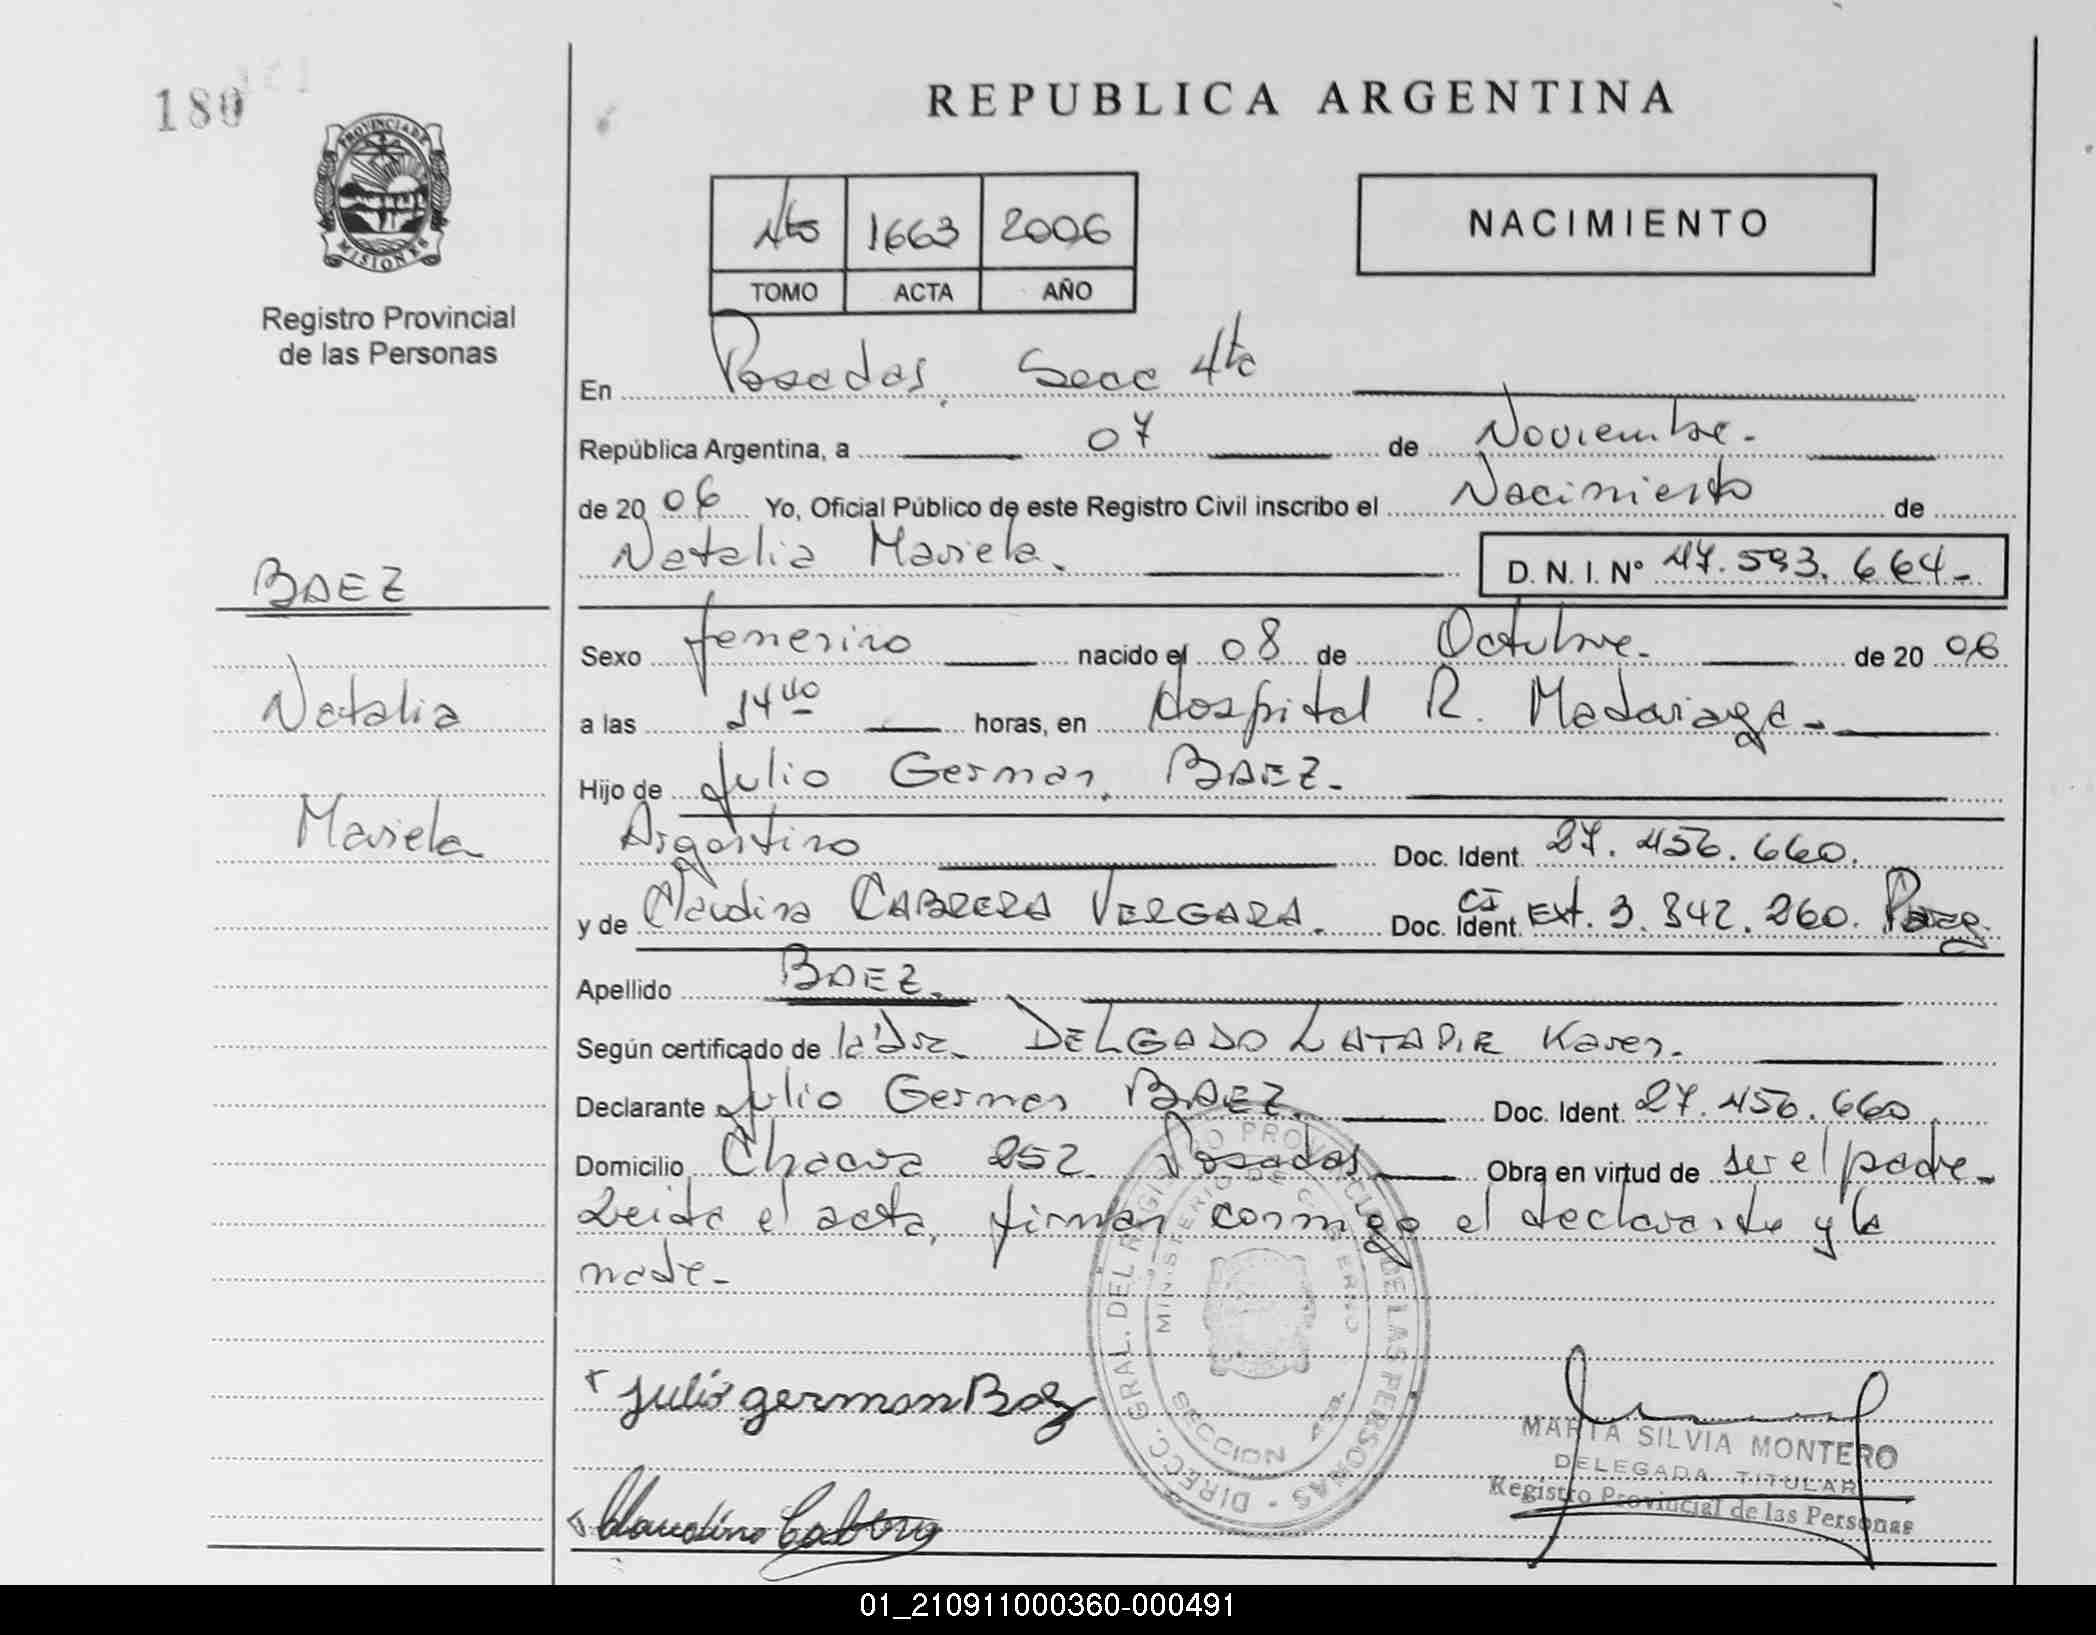 180
REPUBLICA ARGENTINA
PROVINCIA DE
MISIONES
Registro Provincial
de las Personas
4to 1663 2006
TOMO ACTA AÑO
NACIMIENTO
En Posadas, Secc 4ta
República Argentina, a 07 de Noviembre.
de 20 06 Yo, Oficial Público de este Registro Civil inscribo el Nacimiento de
Natalia Mariela. D. N. I. N° 47.593.664-
BAEZ
Sexo femenino nacido el 08 de Octubre. de 20 06
Natalia
a las 14 40 horas, en Hospital R. Madariaga-
Hijo de Julio German, BAEZ-
Mariela
Argentino Doc. Ident. 27.456.660.
y de Claudina CABRERA VERGARA. Doc. Ident. CI Ext. 3.342.260. Parag.
Apellido BAEZ.
Según certificado de la Dra. DELGADO LATAPIE Karen.
Declarante Julio German BAEZ. Doc. Ident. 27.456.660
Domicilio Chacra 252. Posadas Obra en virtud de ser el padre-
Leida el acta, firman conmigo el declarante y la
madre-
DIRECC. GRAL. DEL REGISTRO PROVINCIAL DE LAS PERSONAS
MINISTERIO DE GOBIERNO
SECCION 4ta.
Julio german Baez
Claudina Cabrera
MARTA SILVIA MONTERO
DELEGADA TITULAR
Registro Provincial de las Personas
01_210911000360-000491